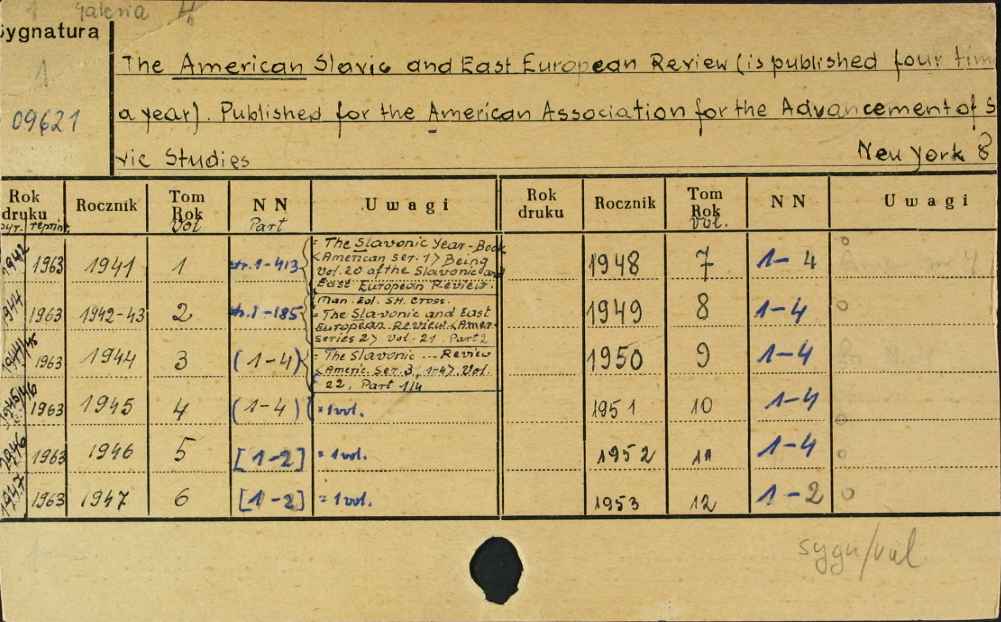 Galeria
Sygnatura
1
09621
The American Slavic and East European Review (is published four tim
a year). Published for the American Association for the Advancement of S
vic Studies New York 8
Rok druku Rocznik Tom Rok NN Uwagi Rok druku Rocznik Tom Rok NN Uwagi
reprint Vol Part Vol.
1942 1963 1941 1 str. 1-413 = The Slavonic Year-Book
<American Ser. 1> Being
Vol. 20 of the Slavonic and
East European Review.
1948 7 1-4
1944 1963 1942-43 2 str. 1-185 Man. Ed. S.H. Cross.
= The Slavonic and East
European Review. <Amer.
series 2> vol. 21 Part 2
1949 8 1-4
1963 1944 3 (1-4) = The Slavonic ... Review
<Americ. Ser. 3, 1-4>. Vol.
22, Part 1/4
1950 9 1-4
1945/46 1963 1945 4 (1-4) = 1 vol. 1951 10 1-4
1946 1963 1946 5 [1-2] = 1 vol. 1952 11 1-4
1947 1963 1947 6 [1-2] = 1 vol. 1953 12 1-2
sygn/vol